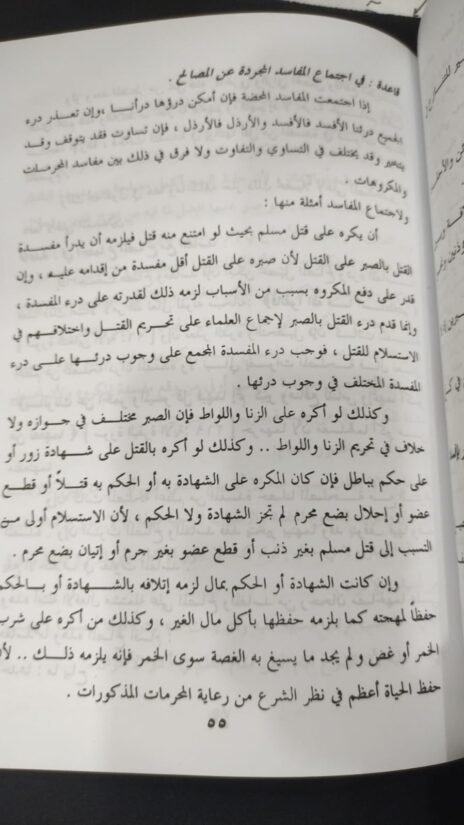 قاعدة : في اجتماع المفاسد المجردة عن المصالح .
إذا اجتمعت المفاسد المحضة فإن أمكن درؤها درأنا ، وإن تعذر درء
الجميع درئنا الأفسد فالأفسد والأرذل فالأرذل ، فإن تساوت فقد يتوقف وقد
يتخير وقد يختلف في التساوي والتفاوت ولا فرق في ذلك بين مفاسد المحرمات
والمكروهات .
ولاجتماع المفاسد أمثلة منها :
أن يكره على قتل مسلم بحيث لو امتنع منه قتل فيلزمه أن يدرأ مفسدة
القتل بالصبر على القتل لأن صبره على القتل أقل مفسدة من إقدامه عليه ، وإن
قدر على دفع المكروه بسبب من الأسباب لزمه ذلك لقدرته على درء المفسدة ،
وإنما قدم درء القتل بالصبر لإجماع العلماء على تحريم القتل واختلافهم في
الاستسلام للقتل ، فوجب درء المفسدة المجمع على وجوب درئها على درء
المفسدة المختلف في وجوب درئها .
وكذلك لو أكره على الزنا واللواط فإن الصبر مختلف في جوازه ولا
خلاف في تحريم الزنا واللواط .. وكذلك لو أكره بالقتل على شهادة زور أو
على حكم بباطل فإن كان المكره على الشهادة به أو الحكم به قتلاً أو قطع
عضو أو إحلال بضع محرم لم تجز الشهادة ولا الحكم ، لأن الاستسلام أولى من
النسبب إلى قتل مسلم بغير ذنب أو قطع عضو بغير جرم أو إتيان بضع محرم .
وإن كانت الشهادة أو الحكم بمال لزمه إتلافه بالشهادة أو بالحكم
حفظاً لمهجته كما يلزمه حفظها بأكل مال الغير ، وكذلك من أكره على شرب
الخمر أو غض ولم يجد ما يسيغ به الغصة سوى الخمر فإنه يلزمه ذلك .. لأن
حفظ الحياة أعظم في نظر الشرع من رعاية المحرمات المذكورات .
٥٥